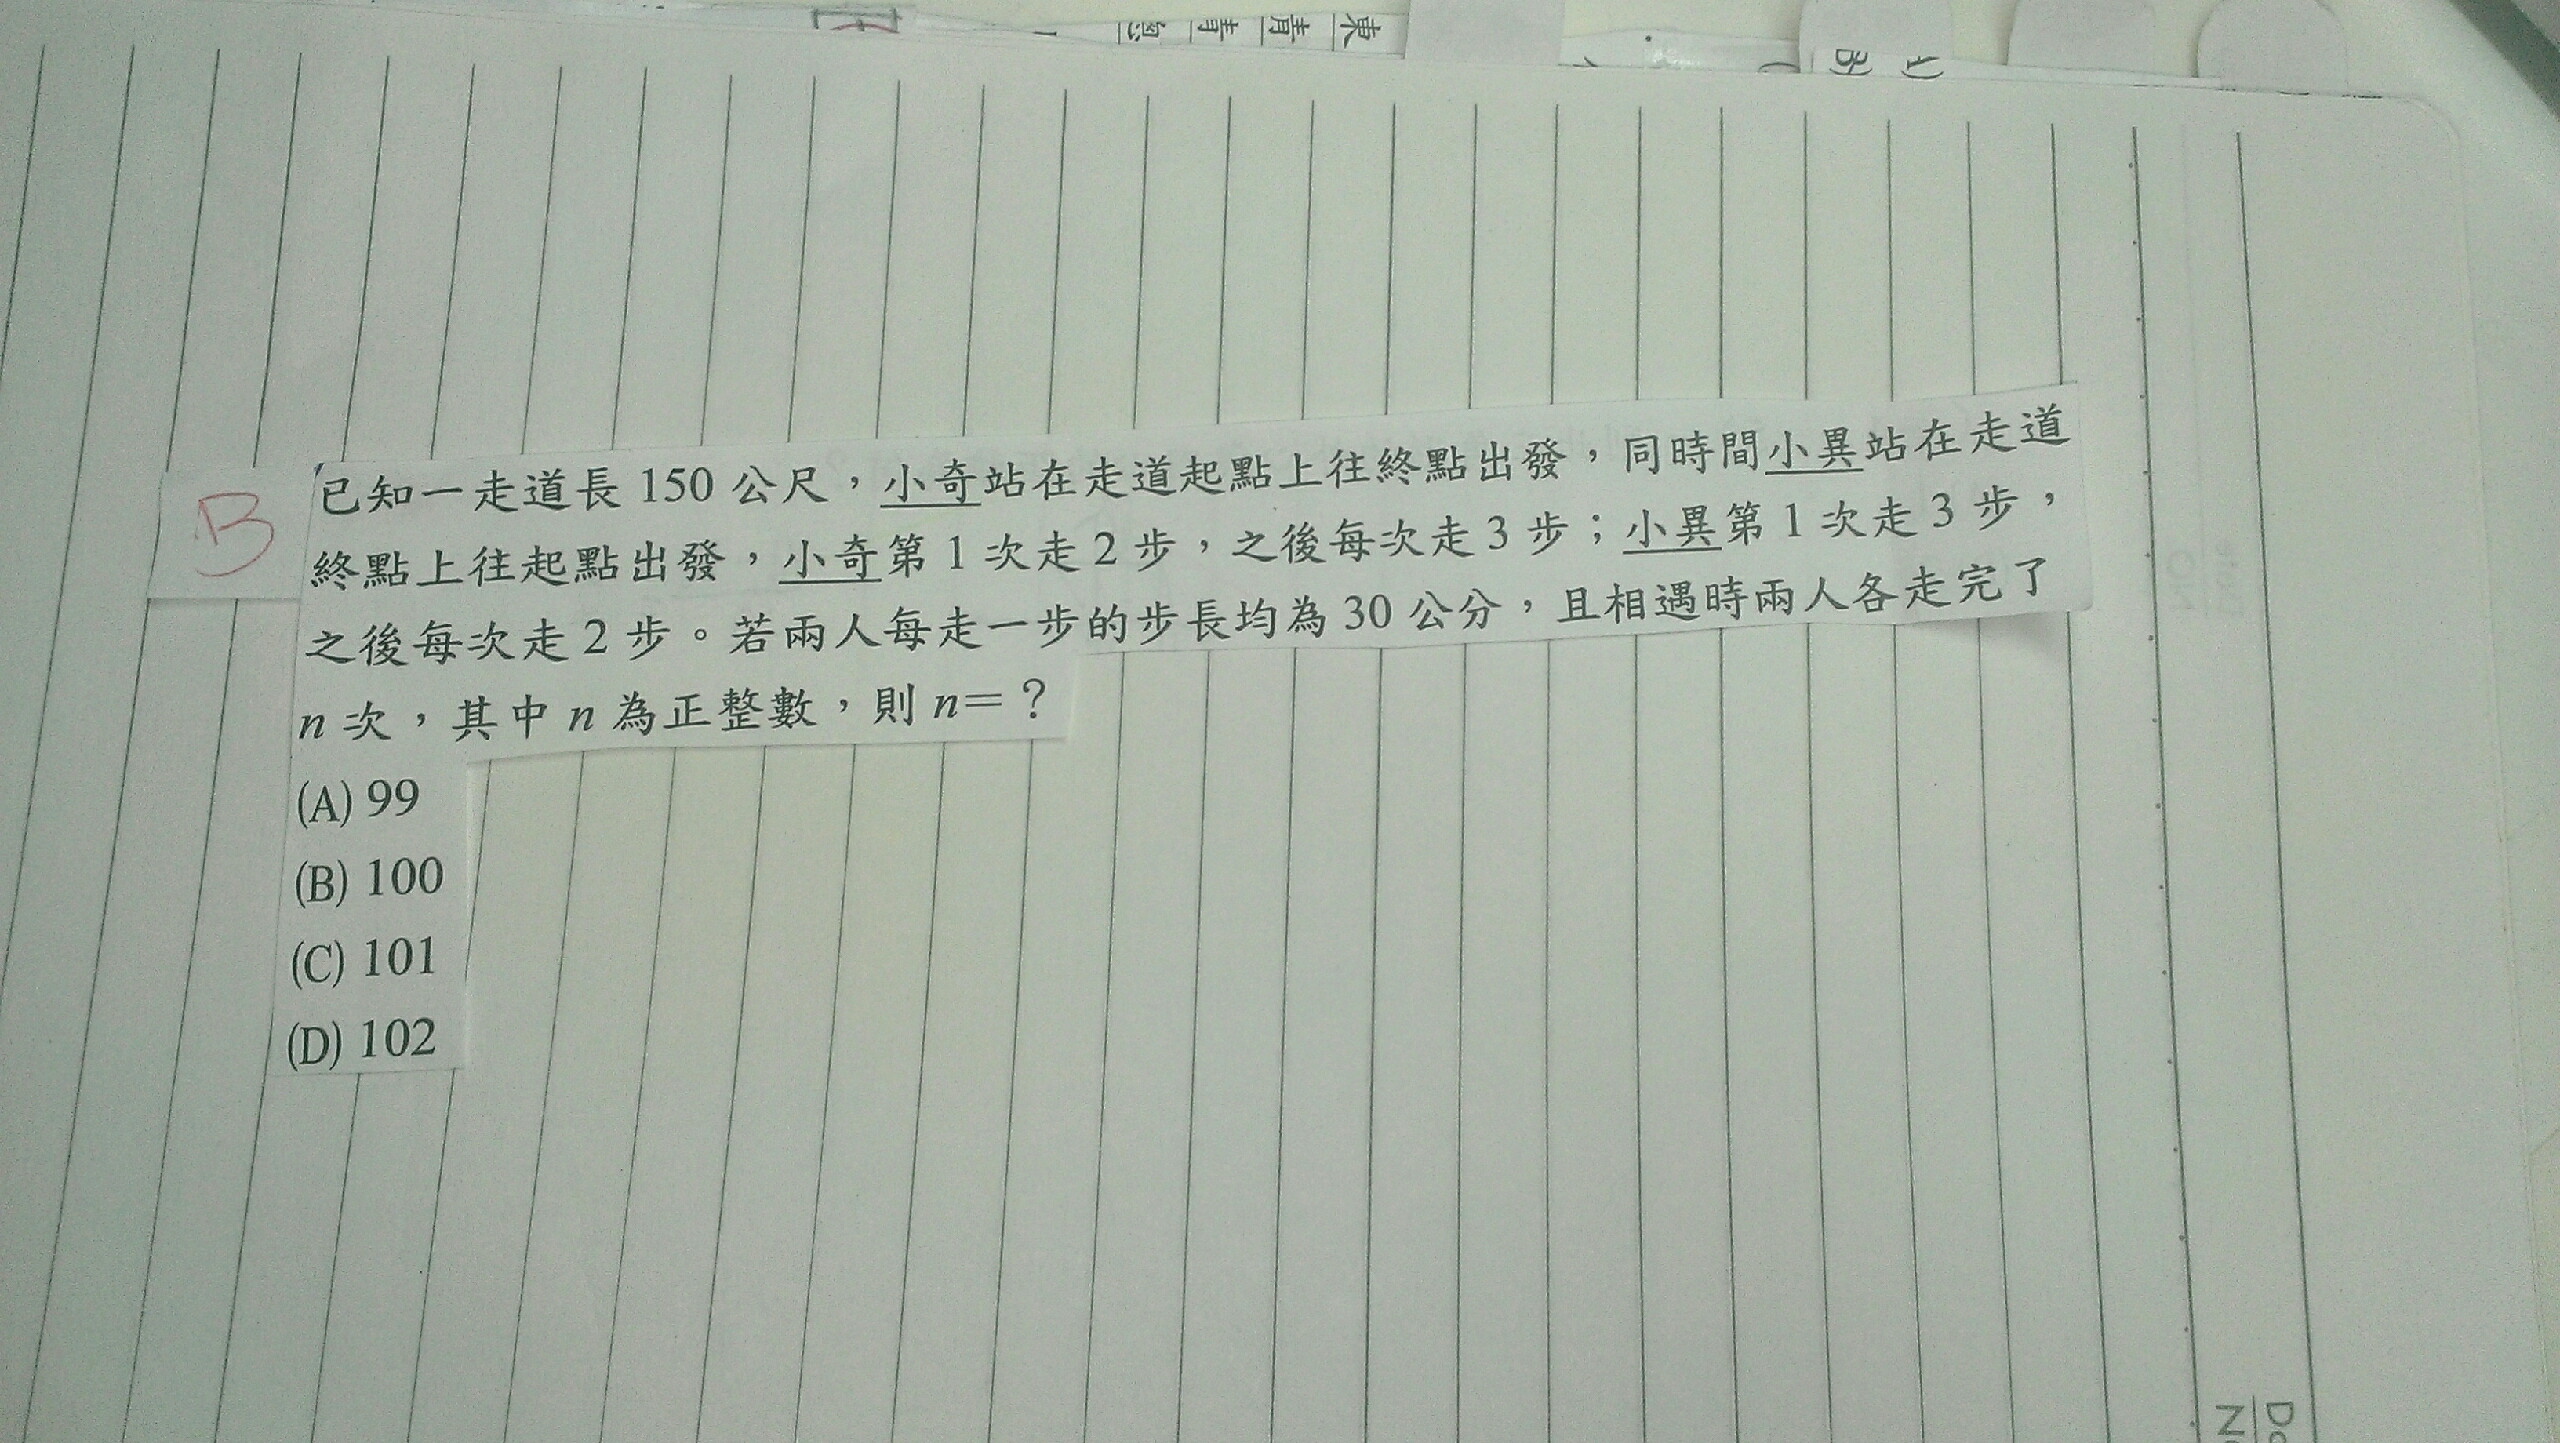 東 青 青
B
已知一走道長 150 公尺，小奇站在走道起點上往終點出發，同時間小異站在走道
終點上往起點出發，小奇第 1 次走 2 步，之後每次走 3 步；小異第 1 次走 3 步，
之後每次走 2 步。若兩人每走一步的步長均為 30 公分，且相遇時兩人各走完了
n 次，其中 n 為正整數，則 n＝？
(A) 99
(B) 100
(C) 101
(D) 102